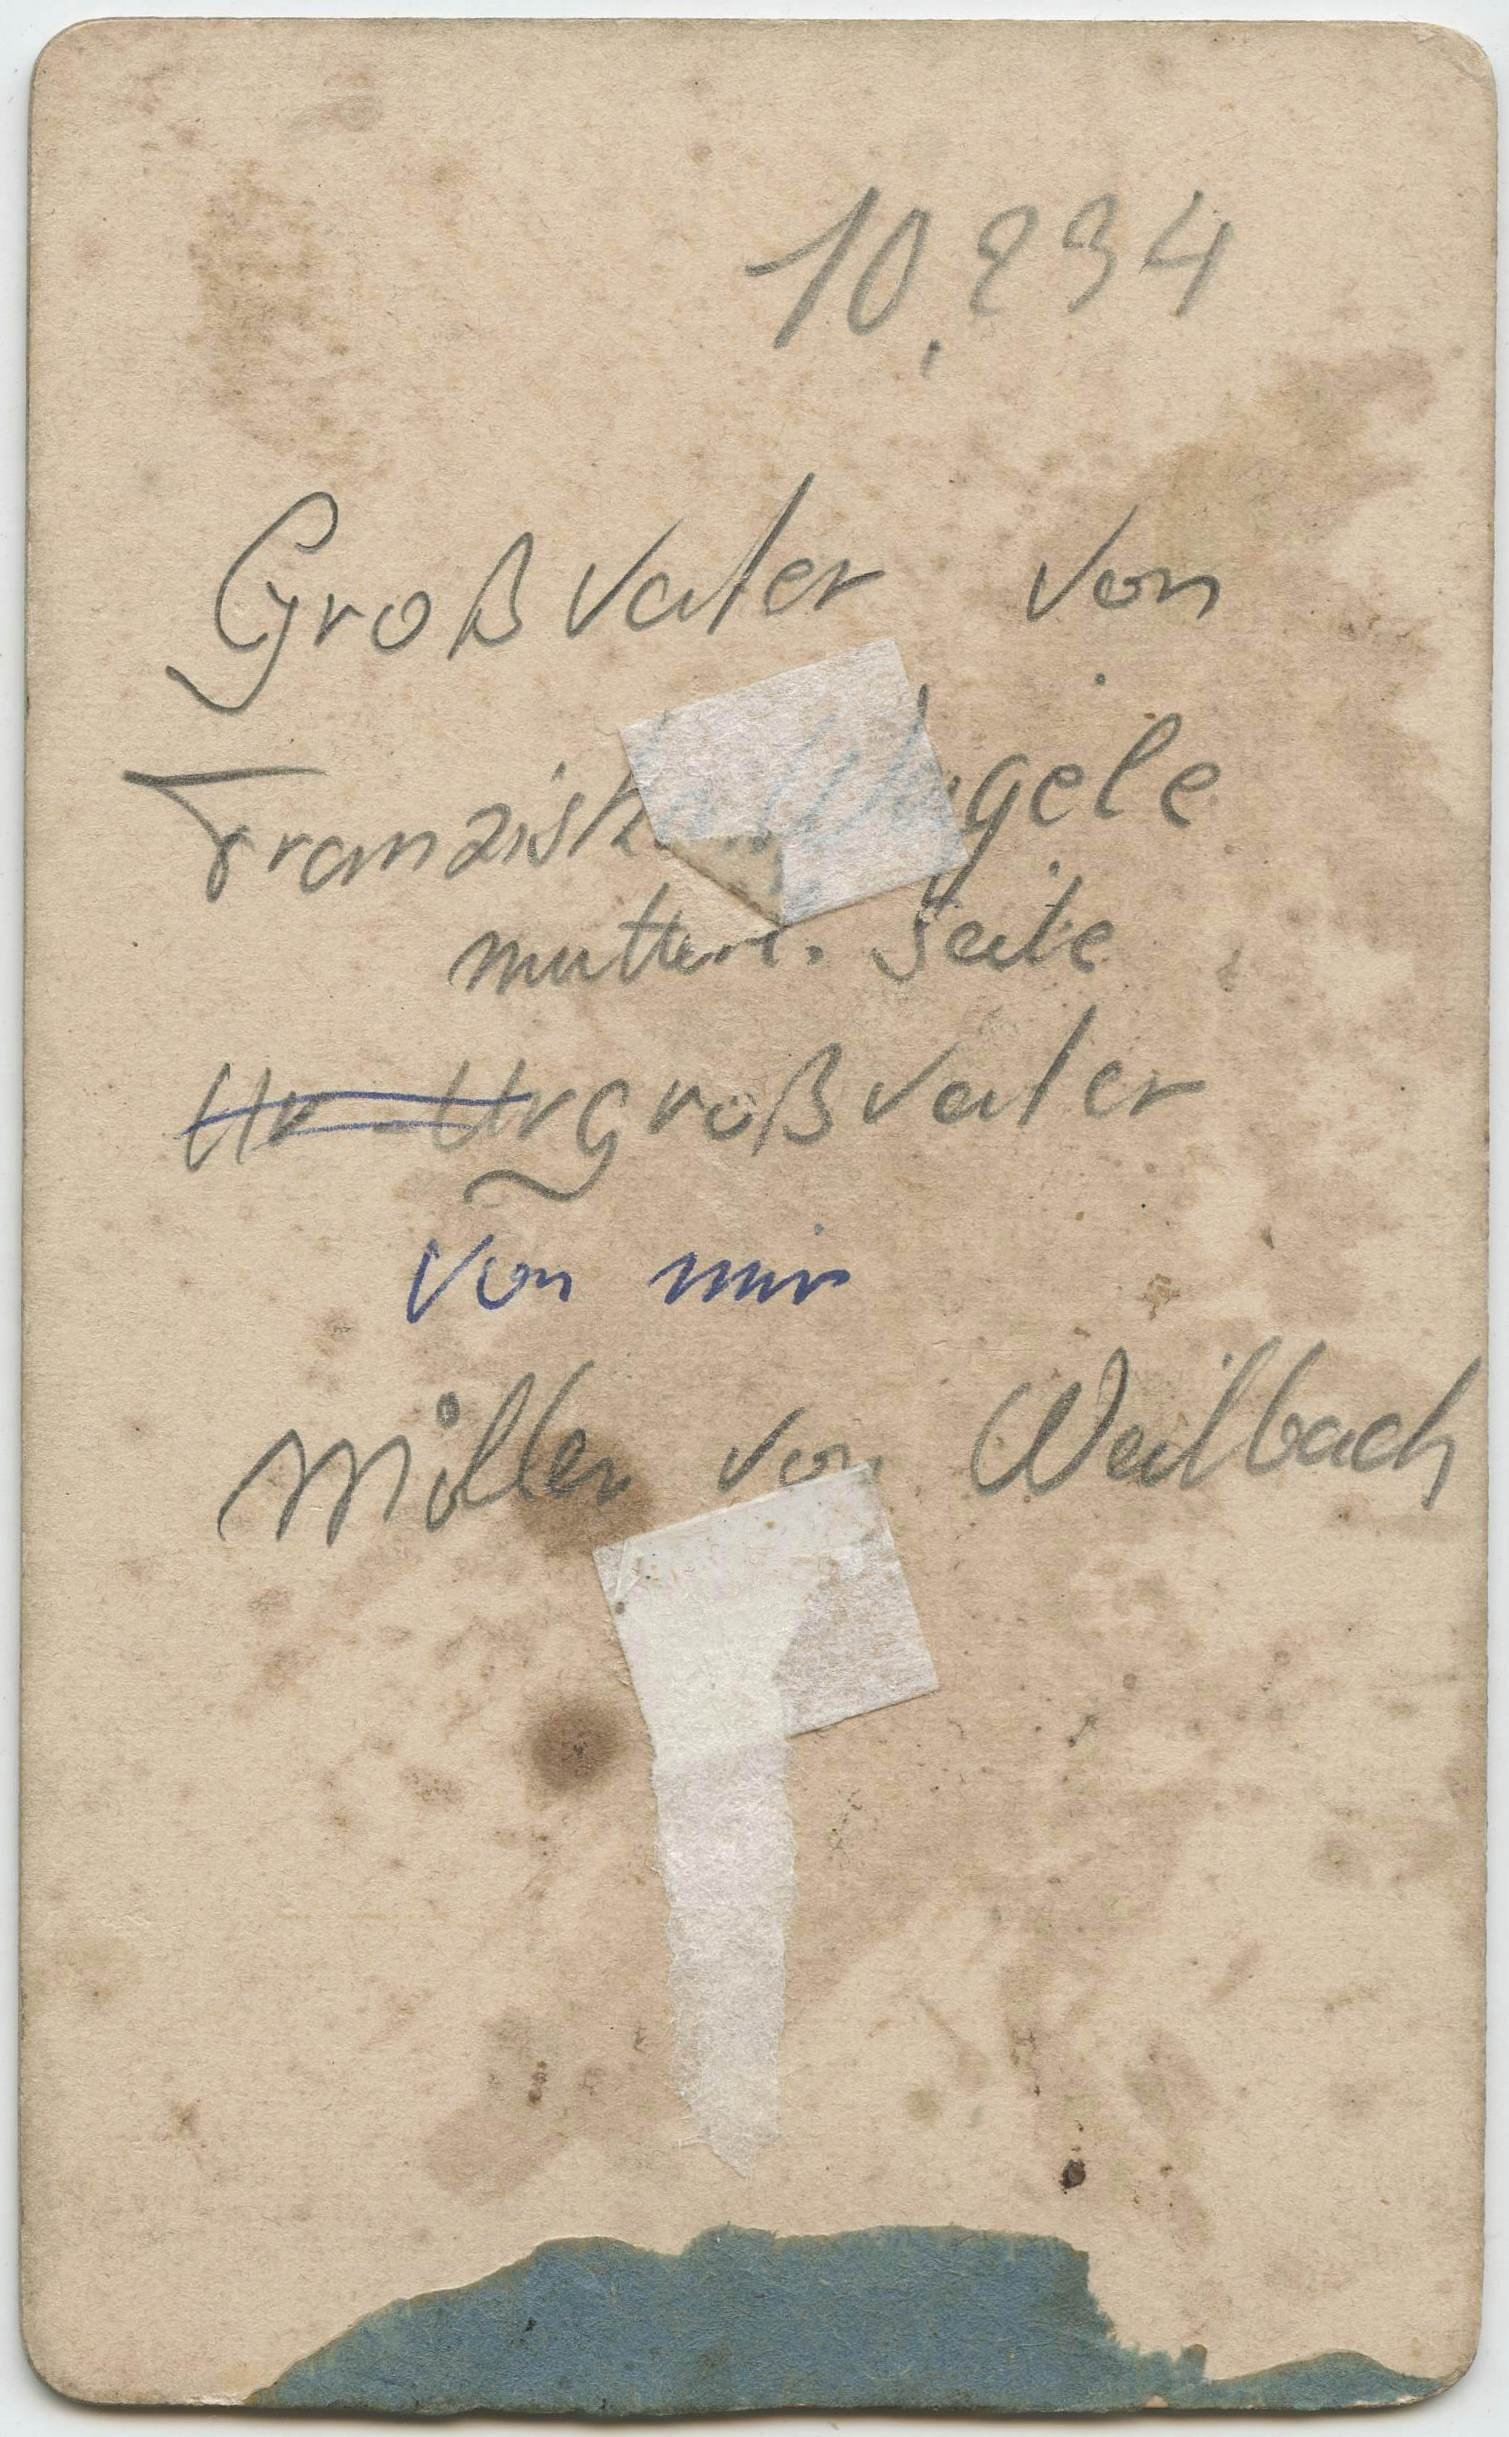 10.234
Großvater von
Franzisk gele
mutterl. Seite
Ur-Urgroßvater
von mir
Müller von Weilbach